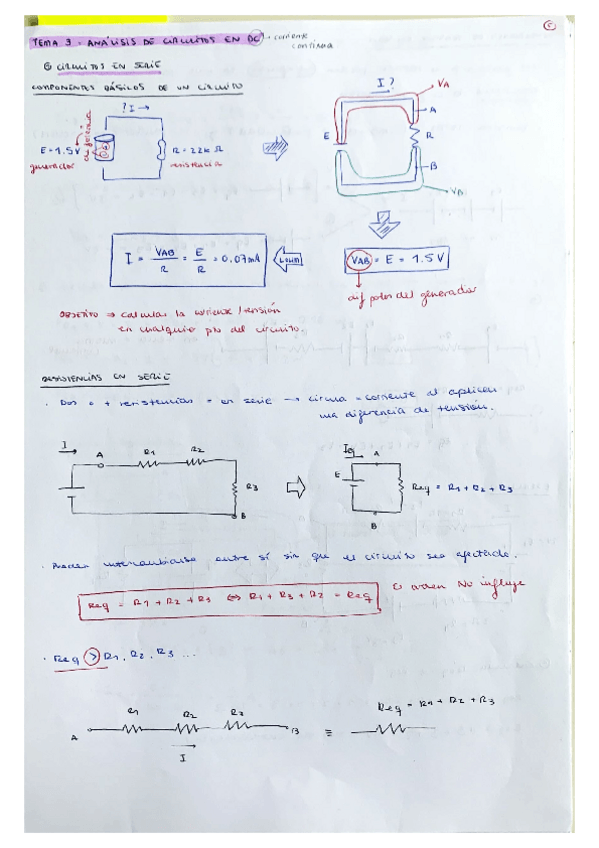 5
TEMA 3 - ANÁLISIS DE CIRCUITOS EN DC → corriente
continua
CIRCUITOS EN SERIE
COMPONENTES BÁSICOS DE UN CIRCUITO
? I →
E = 1.5 V
generador
R = 22k Ω
resistencia
I?
VA
A
E
R
B
VB
I = VAB/R = E/R = 0.07mA
LOHM
VAB = E = 1.5 V
dif poten del generador
OBJETIVO → calcular la corriente / tensión
en cualquier pto del circuito.
RESISTENCIAS EN SERIE
. Dos o + resistencias = en serie → circula = corriente al aplicar
una diferencia de tensión.
I
A
R1
R2
R3
B
I
A
E
B
Req = R1 + R2 + R3
. Pueden intercambiarse entre sí sin que el circuito sea afectado.
Req = R1 + R2 + R3 ⇔ R1 + R3 + R2 = Req
orden NO influye
. Req > R1, R2, R3 ...
A
R1
R2
R3
B
I
≡
Req = R1 + R2 + R3